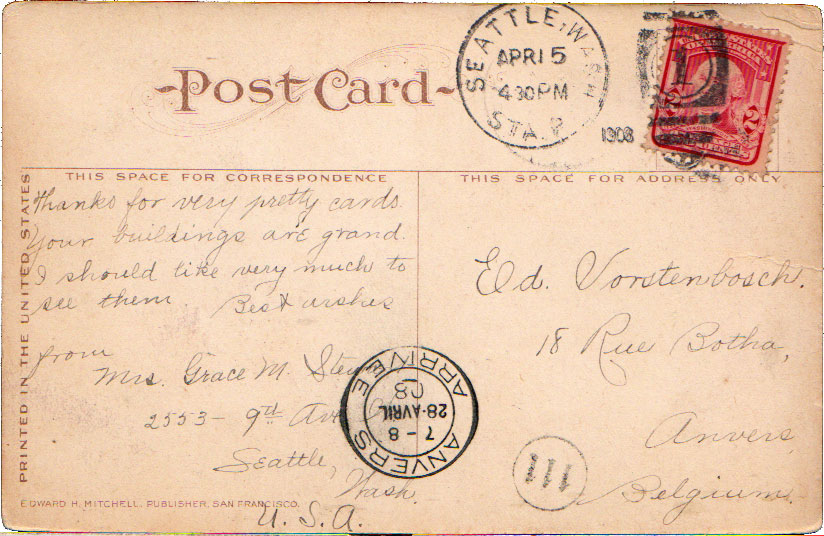 Post Card
SEATTLE, WASH
APR 15
4 30 PM
STA. P.
1908
2
THIS SPACE FOR CORRESPONDENCE
THIS SPACE FOR ADDRESS ONLY
PRINTED IN THE UNITED STATES
Thanks for very pretty cards.
Your buildings are grand.
I should like very much to
see them Best wishes
from
Mrs. Grace M.
2553 - 9th Ave
Seattle,
Wash.
U. S. A.
Ed. Vorstenbosch.
18 Rue Botha,
Anvers,
Belgium.
ANVERS
7 - 8
28 AVRIL
08
ARRIVEE
EDWARD H. MITCHELL, PUBLISHER, SAN FRANCISCO.